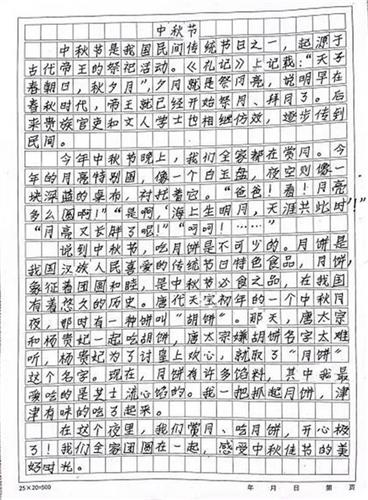 中秋节
中秋节是我国民间传统节日之一，起源于
古代帝王的祭祀活动。《礼记》上记载："天子
春朝日，秋夕月"，夕月就是祭月亮，说明早在
春秋时代，帝王就已经开始祭月、拜月了。后
来贵族官吏和文人学士也相继仿效，逐步传到
民间。
今年中秋节晚上，我们全家都在赏月。今
年的月亮特别圆，像一个白玉盘，夜空则像一
块深蓝的桌布，衬托着它。"爸爸！看！月亮
多么圆啊！""是啊，'海上生明月，天涯共此时'！"
"月亮又长胖了呢！""呵呵！……"
说到中秋节，吃月饼是不可少的。月饼是
我国汉族人民喜爱的传统节日特色食品，月饼
象征着团圆和睦，是中秋节必食之品，在我国
有着悠久的历史。唐代天宝初年的一个中秋月
夜，那时有一种饼叫"胡饼"。那天，唐太宗
和杨贵妃一起吃胡饼，唐太宗嫌胡饼名字太难
听，杨贵妃为了讨皇上欢心，就取了"月饼"
这个名字。现在，月饼有许多馅料，其中我最
爱吃的是芝士流心馅的。我一把抓起月饼，津
津有味的吃了起来。
在这个夜里，我们赏月、吃月饼，开心极
了！我们全家团圆在一起，感受中秋佳节的美
好时光。
25×20=500 年 月 日 第 页